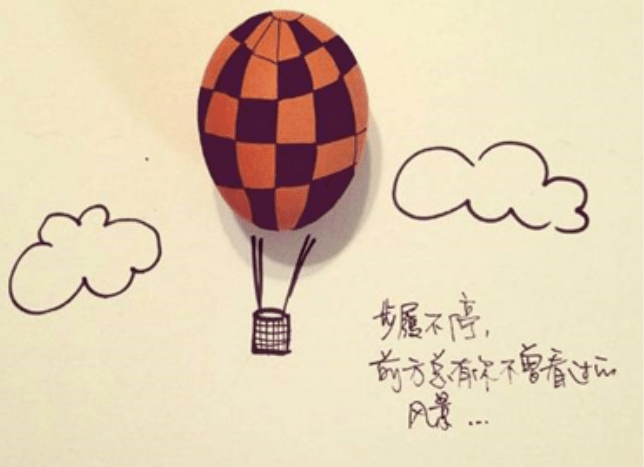 步履不停,
前方总有你不曾看过的
风景...